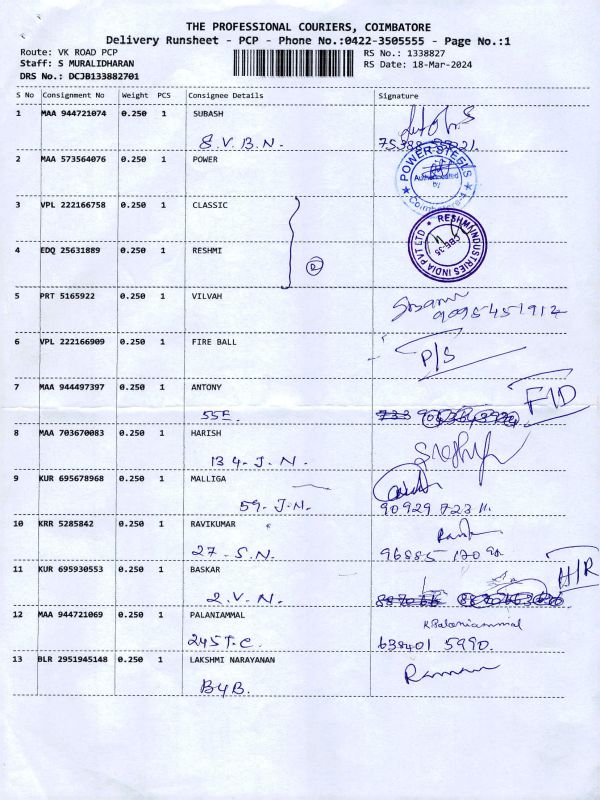 THE PROFESSIONAL COURIERS, COIMBATORE
Delivery Runsheet - PCP - Phone No.:0422-3505555 - Page No.:1
Route: VK ROAD PCP
RS No.: 1338827
Staff: S MURALIDHARAN
RS Date: 18-Mar-2024
DRS No.: DCJB133882701
S No Consignment No Weight PCS Consignee Details Signature
1 MAA 944721074 0.250 1 SUBASH
S.V.B.N.
2 MAA 573564076 0.250 1 POWER
POWER STEELS
Coimbatore-4
3 VPL 222166758 0.250 1 CLASSIC
4 EDQ 25631889 0.250 1 RESHMI
RESHMI INDUSTRIES INDIA PVT LTD
CBE-35
5 PRT 5165922 0.250 1 VILVAH
9095451912
6 VPL 222166909 0.250 1 FIRE BALL
P/S
7 MAA 944497397 0.250 1 ANTONY
55E
F/D
8 MAA 703670083 0.250 1 HARISH
134-J.N.
9 KUR 695678968 0.250 1 MALLIGA
59-J.N.
90929 723 11
10 KRR 5285842 0.250 1 RAVIKUMAR
27-S.N.
11 KUR 695930553 0.250 1 BASKAR
2.V.N.
H/R
12 MAA 944721069 0.250 1 PALANIAMMAL
245T.C.
K Palaniammal
638401 5990
13 BLR 2951945148 0.250 1 LAKSHMI NARAYANAN
B4B.
Raman